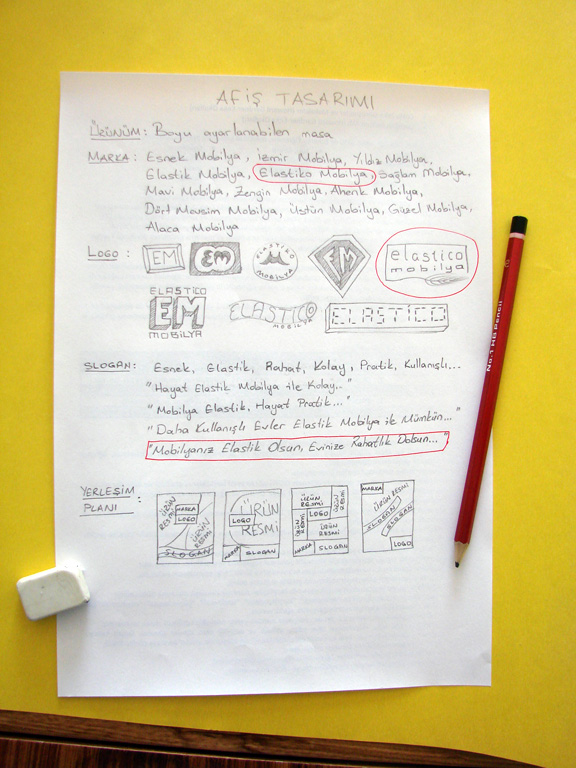 AFİŞ TASARIMI
ÜRÜNÜM : Boyu ayarlanabilen masa
MARKA : Esnek Mobilya, İzmir Mobilya, Yıldız Mobilya,
Elastik Mobilya, Elastiko Mobilya, Sağlam Mobilya,
Mavi Mobilya, Zengin Mobilya, Ahenk Mobilya,
Dört Mevsim Mobilya, Üstün Mobilya, Güzel Mobilya,
Alaca Mobilya
LOGO :
EM
EM
ELASTİKO MOBİLYA
EM
elastico mobilya
ELASTİCO EM MOBİLYA
ELASTİCO MOBİLYA
ELASTİCO
SLOGAN: Esnek, Elastik, Rahat, Kolay, Pratik, Kullanışlı...
"Hayat Elastik Mobilya ile Kolay.."
"Mobilya Elastik, Hayat Pratik..."
"Daha Kullanışlı Evler Elastik Mobilya ile Mümkün..."
"Mobilyanız Elastik Olsun, Evinize Rahatlık Dolsun..."
YERLEŞİM PLANI :
ÜRÜN RESMİ MARKA LOGO ÜRÜN RESMİ SLOGAN
ÜRÜN RESMİ LOGO MARKA SLOGAN
ÜRÜN RESMİ ÜRÜN RESMİ LOGO ÜRÜN RESMİ ÜRÜN RESMİ MARKA SLOGAN
MARKA ÜRÜN RESMİ SLOGAN SLOGAN LOGO
No:1 HB Pencil